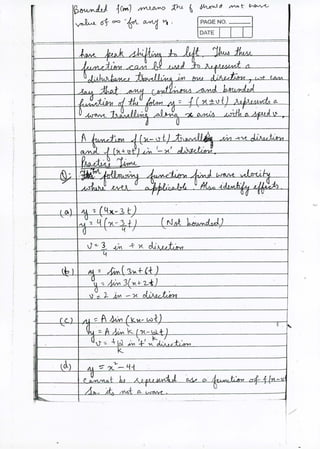 Bounded f(m) means the f should not have
value of ∞ for any n.
PAGE NO.
DATE
have peak shifting to left. Thus these
function can be used to represent a
disturbance travelling in one direction, we can
say that any continous and bounded
function of the form y = f(x±vt) represents a
wave travelling along x axis with a speed v.
A function f(x-vt) travelling in +x direction
and f(x+vt) in '-x' direction.
Practice Time
Q: following function find wave velocity
where ever applicable. Also identify
(a) y = (4x-3t)
y = 4(x-3/4 t) (Not bounded)
v = 3/4 in +x direction
(b) y = sin(3x+6t)
y = sin 3(x+2t)
v = 2 in -x direction
(c) y = A sin(kx-ωt)
y = A sin k(x-ωt/k)
v = +ω/k in +x direction
(d) y = x²-4t
cannot be represented as a function of f(x-v
so its not a wave.